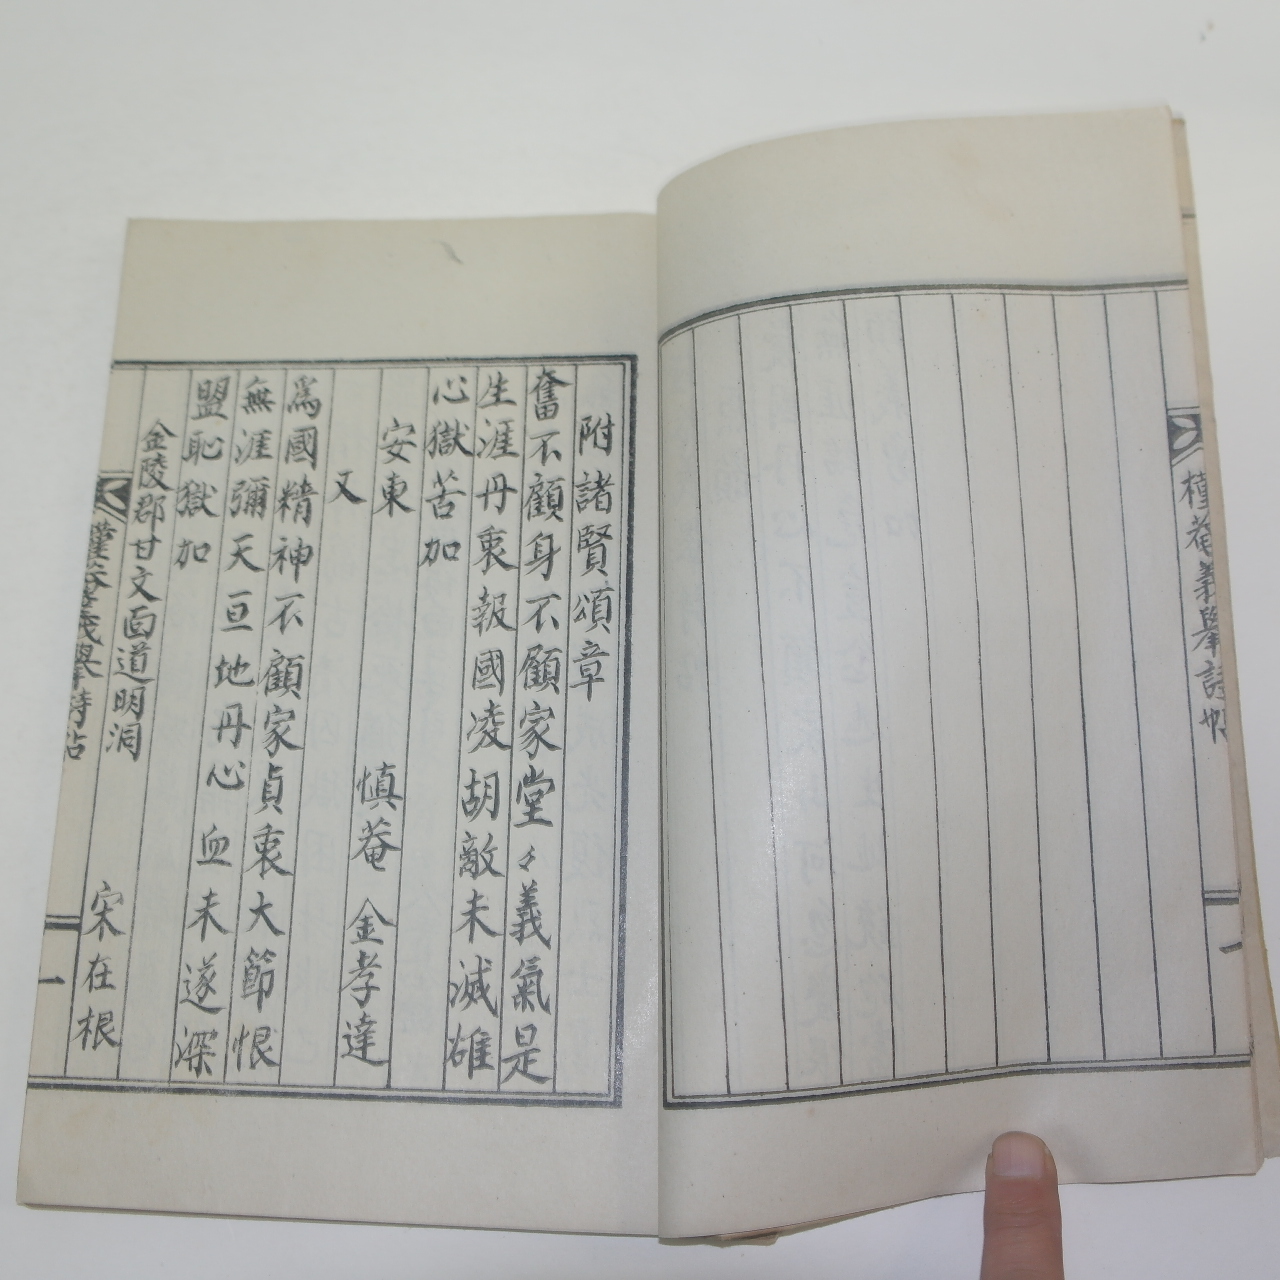 附諸賢頌章
奮不顧身不顧家堂々義氣是
生涯丹衷報國凌胡敵未滅雄
心獄苦加
安東 慎菴 金孝達
又
爲國精神不顧家貞衷大節恨
無涯彌天亘地丹心血未遂深
盟恥獄加
金陵郡甘文面道明洞 宋在根
一
菴義擧詩帖